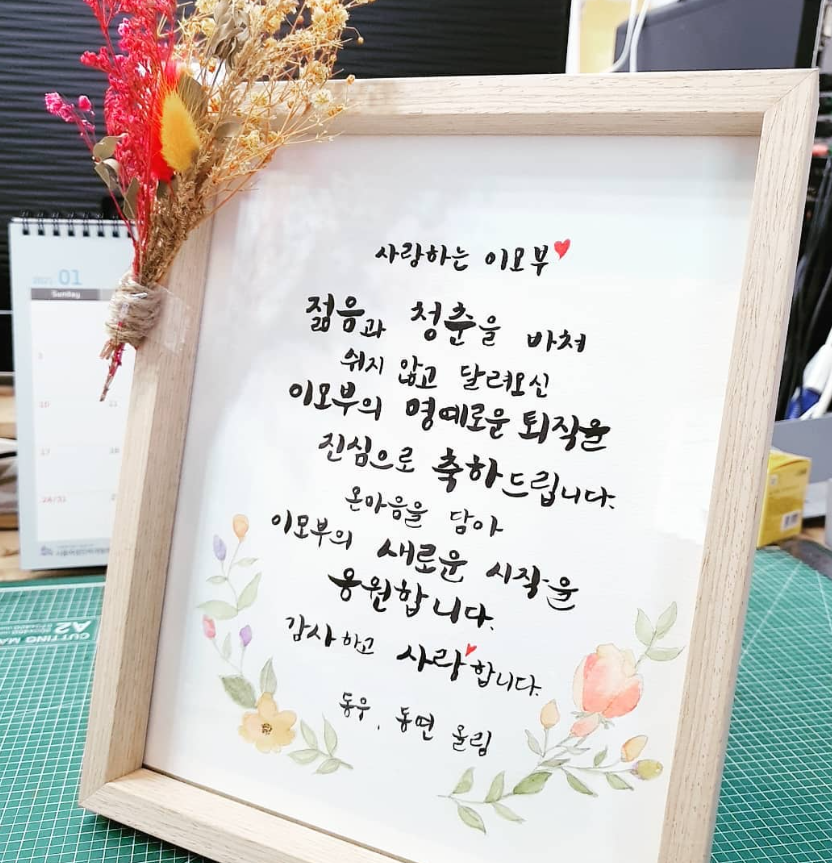 사랑하는 이모부
젊음과 청춘을 바쳐
쉬지 않고 달려오신
이모부의 명예로운 퇴직을
진심으로 축하드립니다.
온마음을 담아
이모부의 새로운 시작을
응원합니다.
감사하고 사랑합니다.
동우, 동면 올림
01
Sunday
10
17
24/31
CUTTING MA
A2